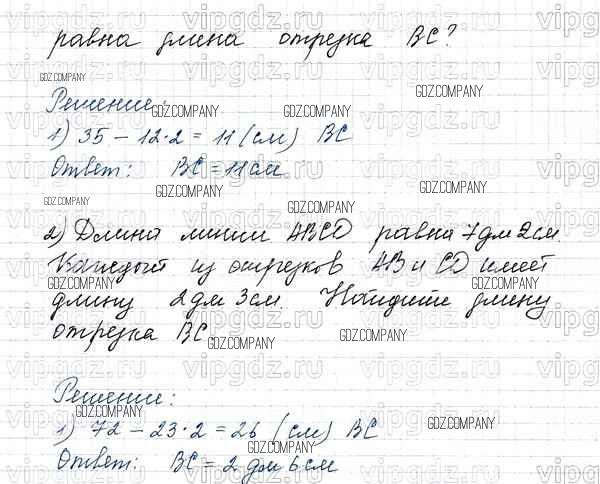 равна длина отрезка BC?
Решение:
1) 35 – 12·2 = 11 (см) BC
Ответ: BC = 11 см
2) Длина линии ABCD равна 7 дм 2 см.
Каждый из отрезков AB и CD имеет
длину 2 дм 3 см. Найдите длину
отрезка BC
Решение:
1) 72 – 23·2 = 26 (см) BC
Ответ: BC = 2 дм 6 см
vipgdz.ru
GDZ.COMPANY